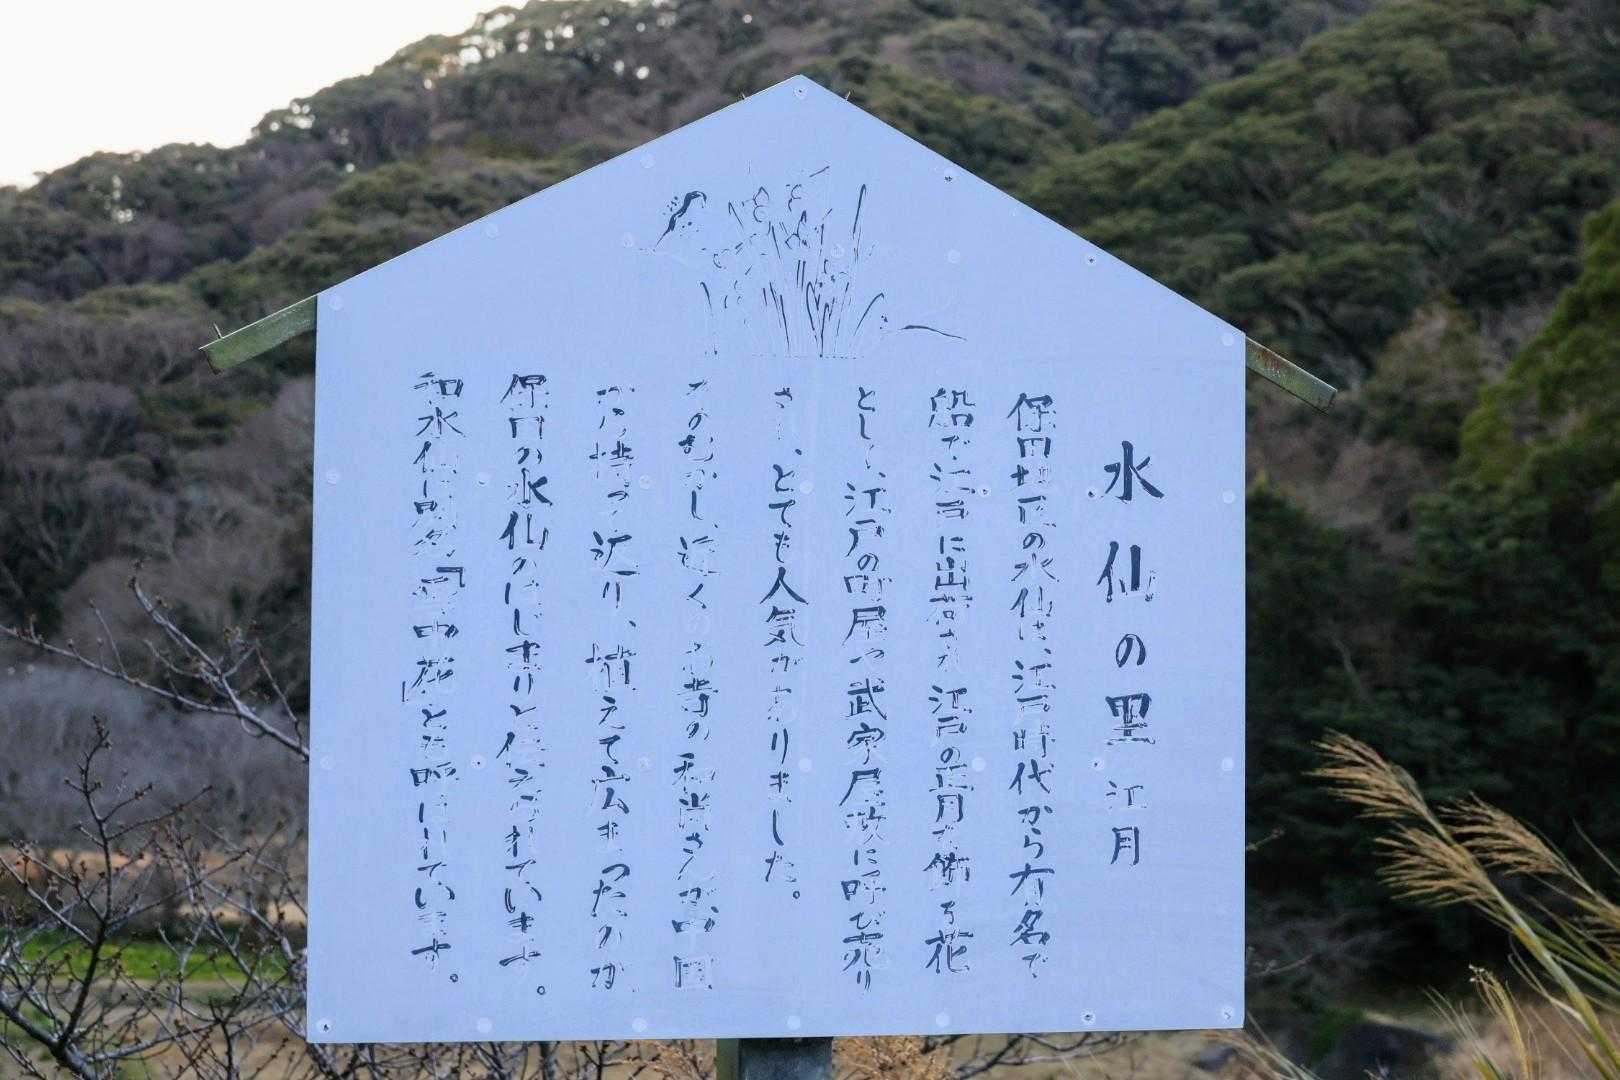 水仙の里 江月
保田地区の水仙は、江戸時代から有名で
船で江戸に出荷され江戸の正月を飾る花
として、江戸の町屋や武家屋敷に呼び売り
され、とても人気がありました。
そのむかし、近くのお寺の和尚さんが
から持って返り、植えて広まったのが
保田の水仙のはじまりと伝えられています。
和水仙は別名『雪中花』とも呼ばれています。